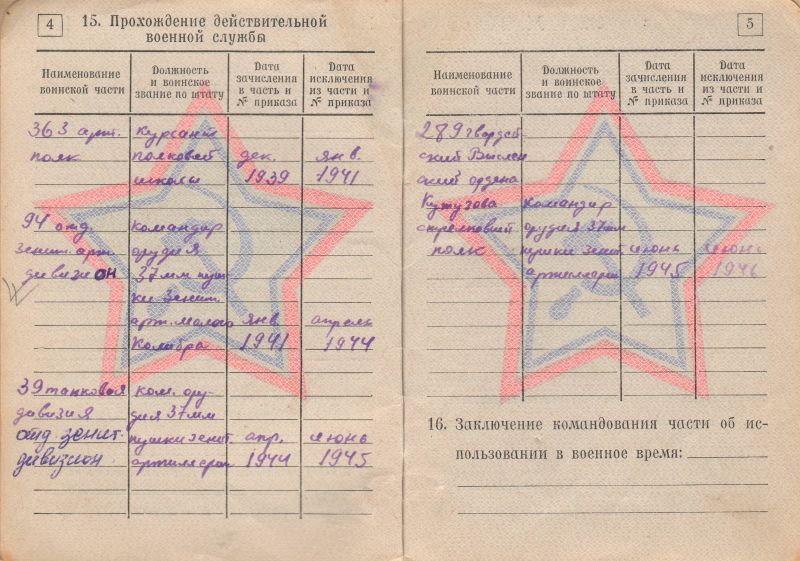 4
15. Прохождение действительной
военной службы
Наименование воинской части
Должность и воинское звание по штату
Дата зачисления в часть и № приказа
Дата исключения из части и № приказа
363 арт. курсант
полк полковой дек. янв.
школы 1939 1941
94 отд. командир
зенит. арт. орудия
дивизион 37мм пуш
ки зенит.
арт. малого янв. апрель
калибра 1941 1944
39 танковая ком. ору-
дивизия дия 37мм
отд. зенит. пушки зенит. апр. июнь
дивизион артилерии 1944 1945
5
Наименование воинской части
Должность и воинское звание по штату
Дата зачисления в часть и № приказа
Дата исключения из части и № приказа
289 гвардей
ский Вислен
ский ордена
Кутузова командир
стрелковый орудия 37мм
полк пушки зенит. июнь июнь
артилерии 1945 1946
16. Заключение командования части об ис-
пользовании в военное время: